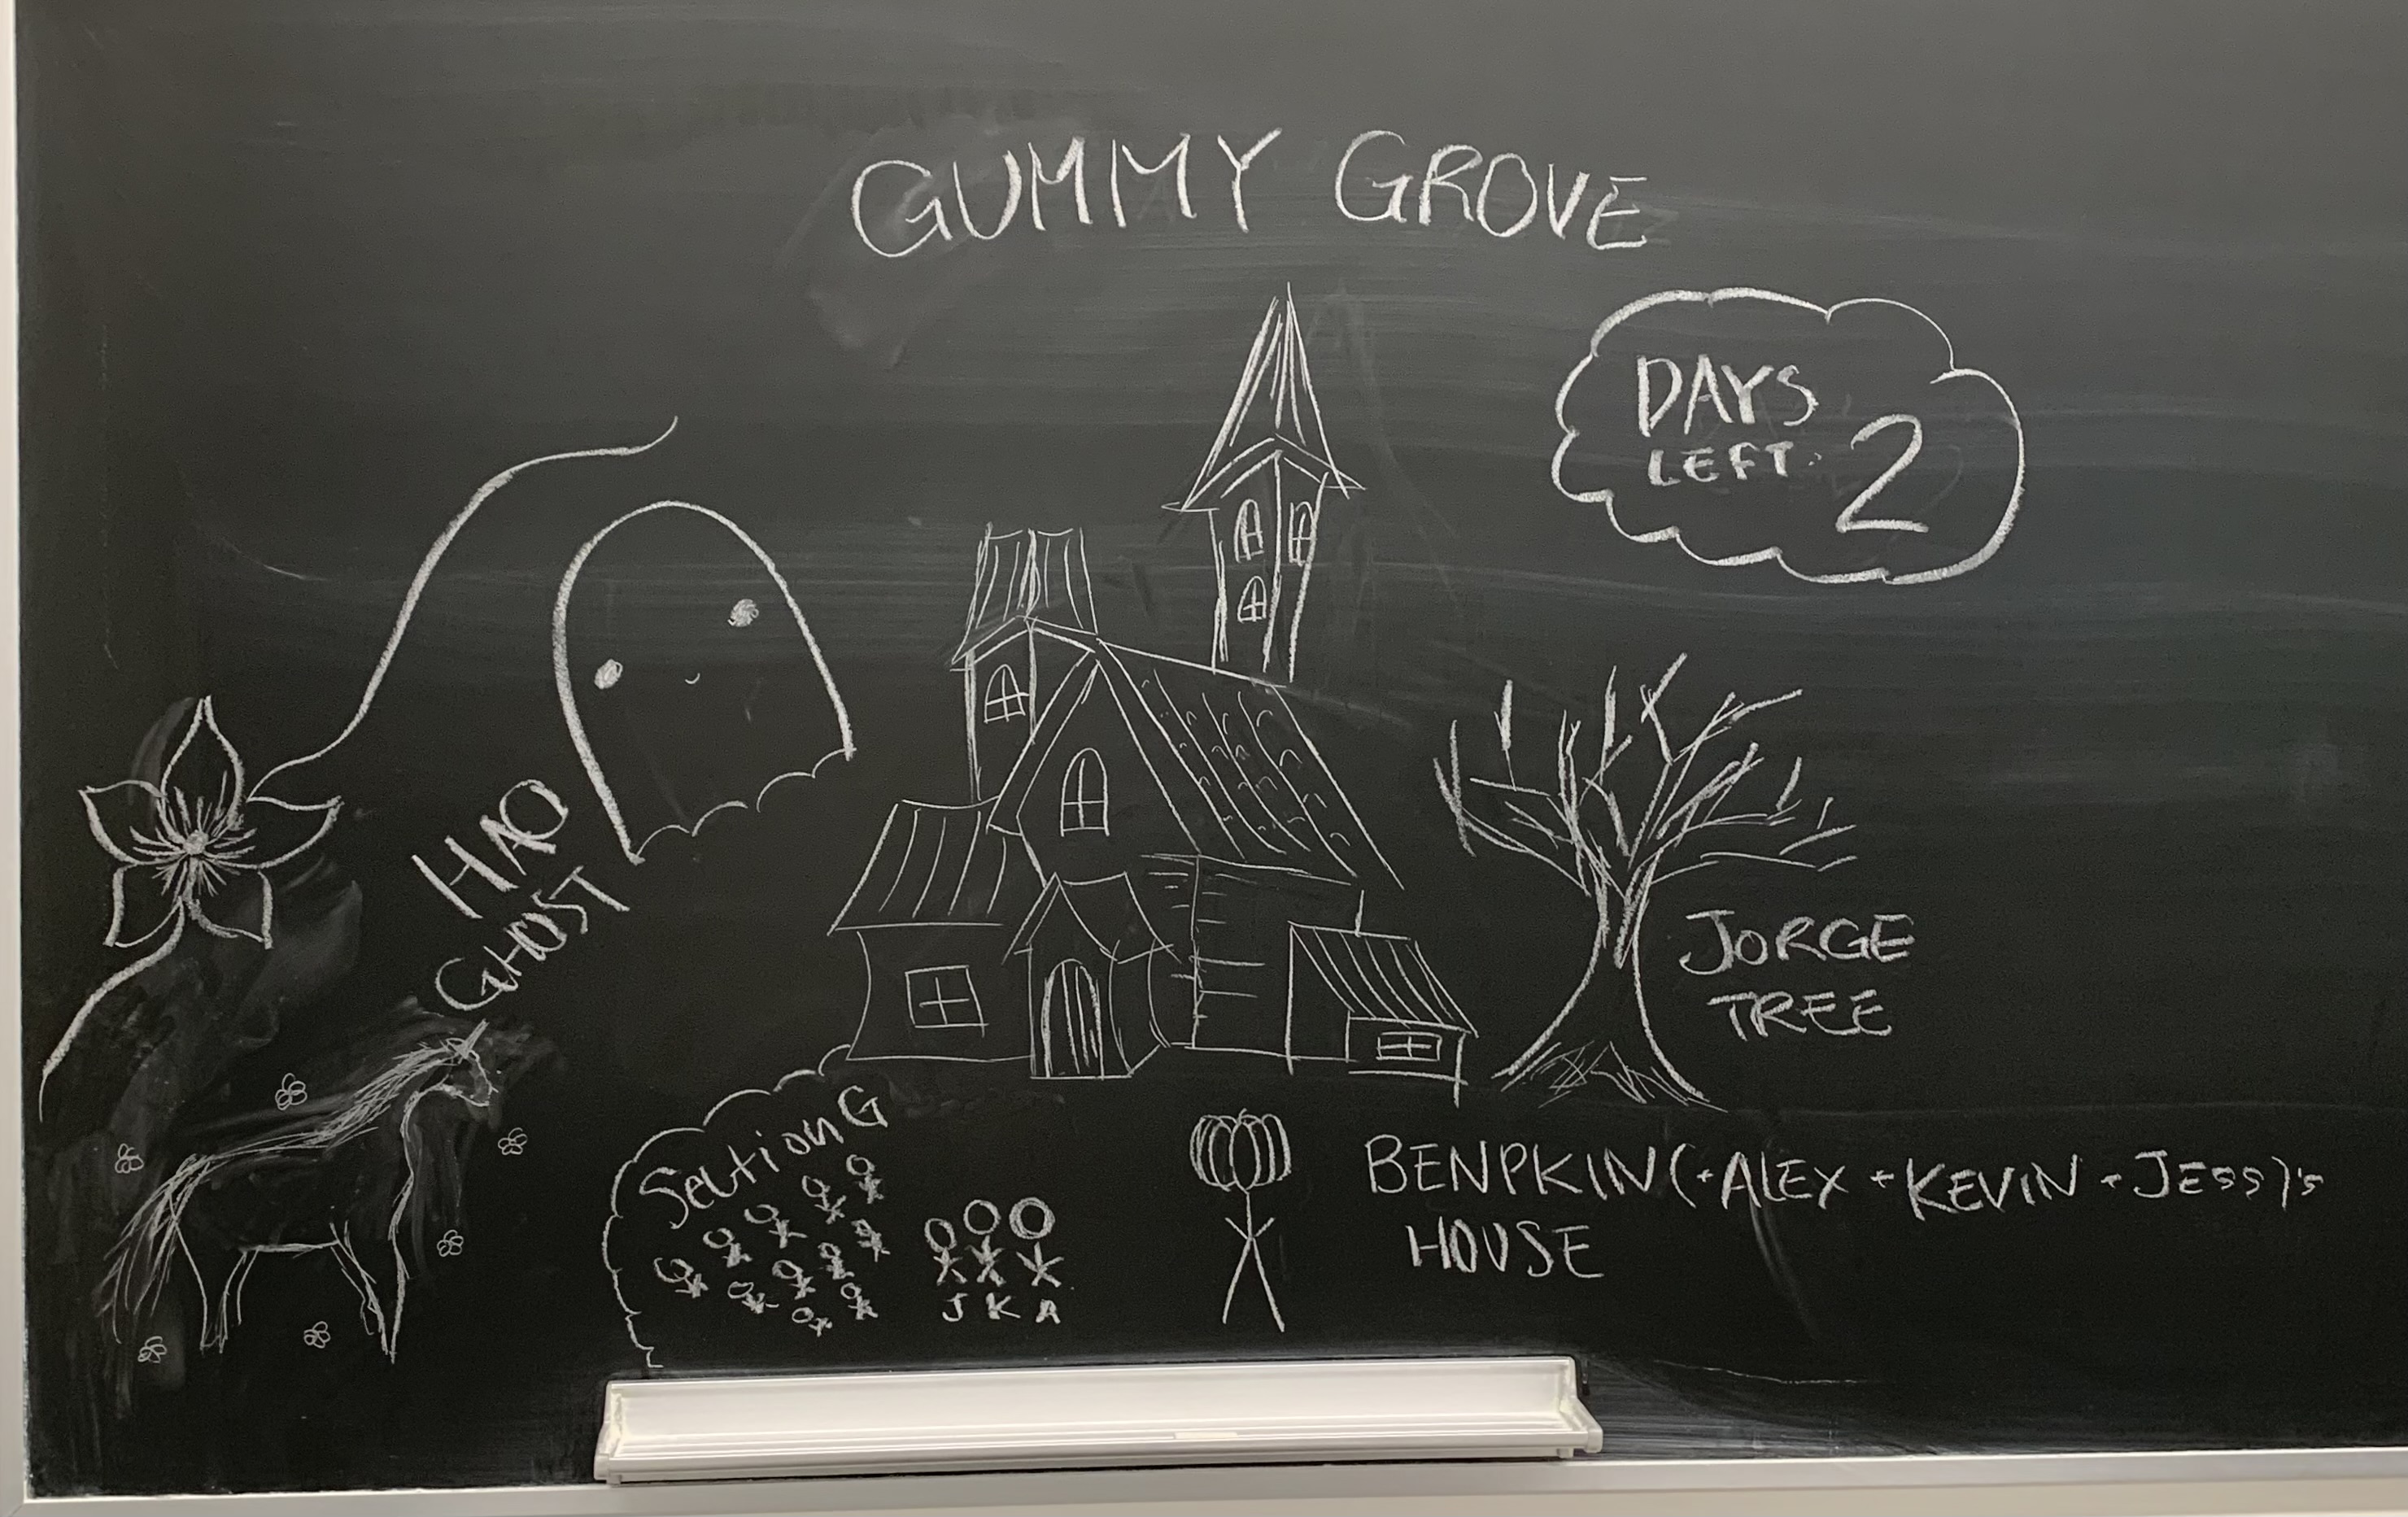 GUMMY GROVE
DAYS
LEFT: 2
HAO
GHOST
JORGE
TREE
Section G
J K A
BENPKIN (+ALEX + KEVIN + JESS)'s
HOUSE